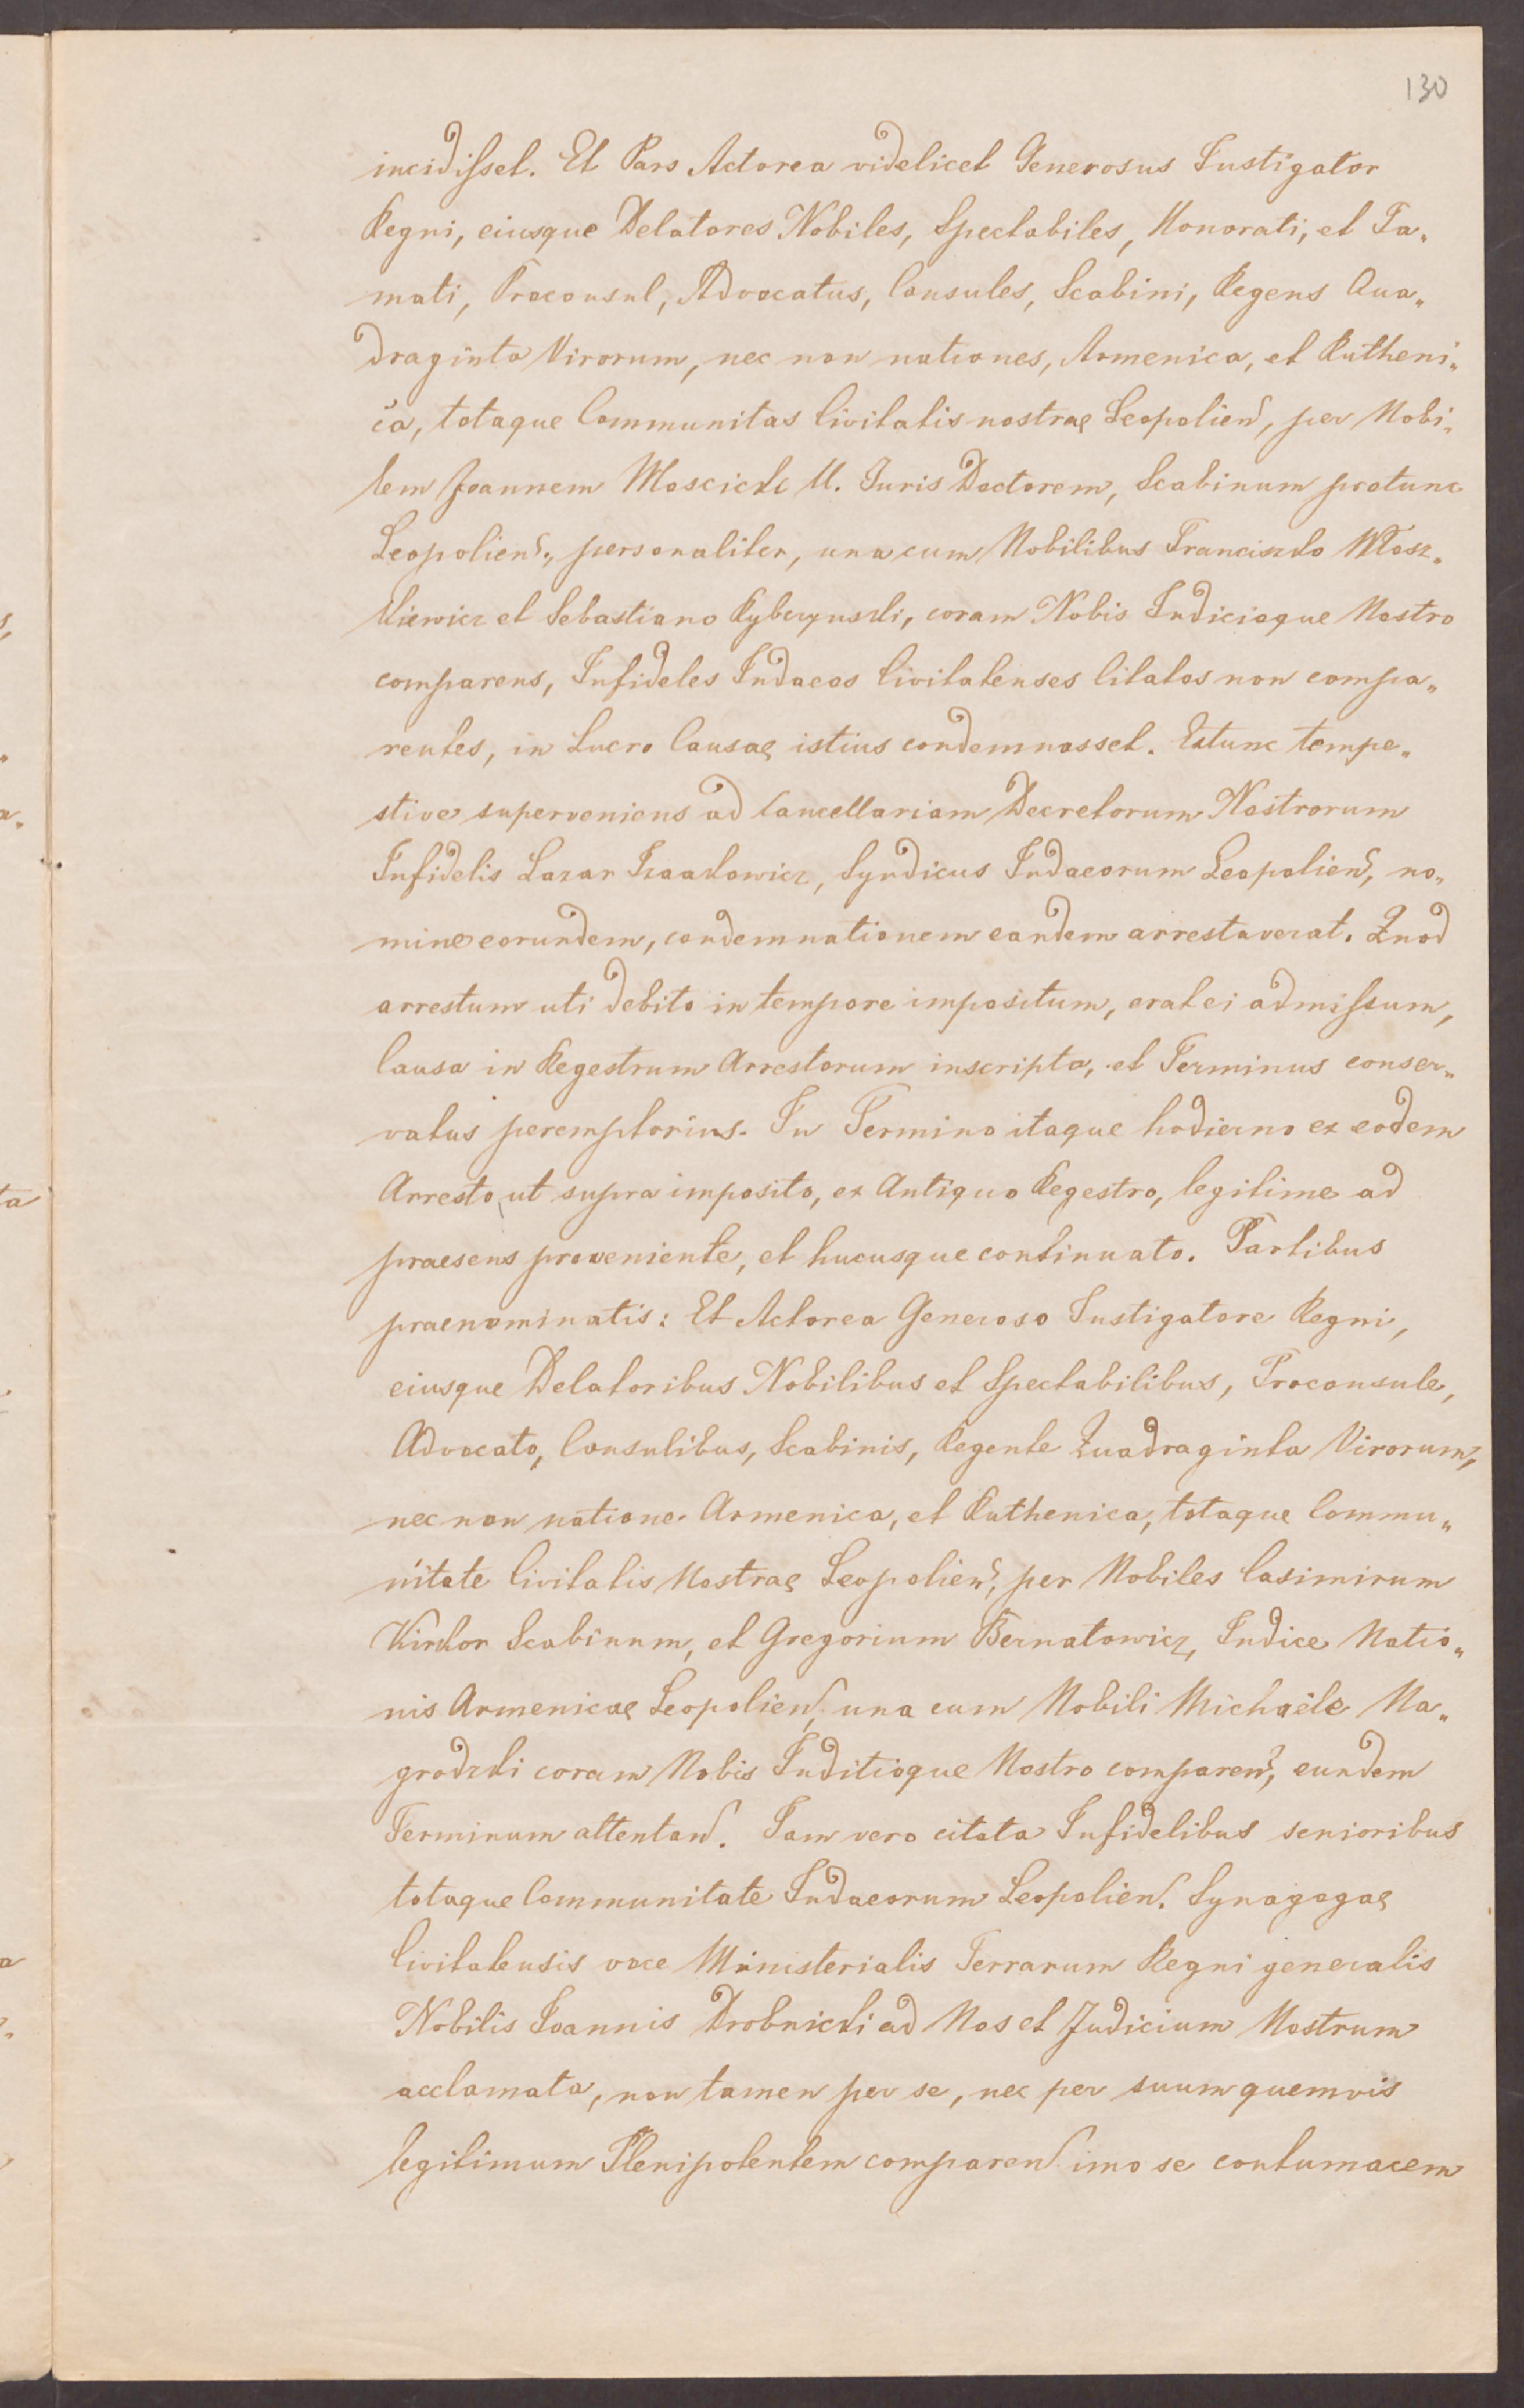 130
incidisset. Et Pars Actorea videlicet Generosus Instigator
Regni, eiusque Delatores Nobiles, Spectabiles, Honorati, et Fa„
mati, Proconsul, Advocatus, Consules, Scabini, Regens Qua„
draginta Virorum, nec non nationes, Armenica, et Rutheni„
ca, totaque Communitas Civitatis nostrae Leopolien, per Nobi„
lem Joannem Moscicki U. Juris Doctorem, Scabinum protunc
Leopolien., personaliter, una cum Nobilibus Franciszko Włosz„
kiewicz et Sebastiano Rybczynski, coram Nobis Iudicioque Nostro
comparens, Infideles Iudaeos Civitatenses Citatos non compa„
rentes, in Lucro Causae istius condemnasset. Extunc tempe„
stive superveniens ad Cancellariam Decretorum Nostrorum
Infidelis Lazar Izaakowicz, Syndicus Iudaeorum Leopolien, no„
mine eorundem, condemnationem eandem arrestaverat. Quod
arrestum uti debito in tempore impositum, erat ei admissum,
Causa in Regestrum Arrestorum inscripta, et Terminus conser„
vatus peremptorius. In Termino itaque hodierno ex eodem
Arresto, ut supra imposito, ex Antiquo Regestro, legitime ad
praesens proveniente, et hucusque continuato. Partibus
praenominatis: Et Actorea Generoso Instigatore Regni,
eiusque Delatoribus Nobilibus et Spectabilibus, Proconsule,
Advocato, Consulibus, Scabinis, Regente Quadraginta Virorum,
nec non natione Armenica, et Ruthenica, totaque Commu„
nitate Civitatis Nostrae Leopolien, per Nobiles Casimirum
Kirkor Scabinum, et Gregorium Bernatowicz, Iudice Natio„
nis Armenicae Leopolien, una cum Nobili Michaële Na„
grodzki coram Nobis Iuditioque Nostro comparen, eundem
Terminum attentan. Iam vero citata Infidelibus senioribus
totaque Communitate Iudaeorum Leopolien. Synagogae
Civitatensis voce Ministerialis Terrarum Regni generalis
Nobilis Ioannis Drobnicki ad Nos et Judicium Nostrum
acclamata, non tamen per se, nec per suum quemvis
legitimum Plenipotentem comparen. imo se contumacem